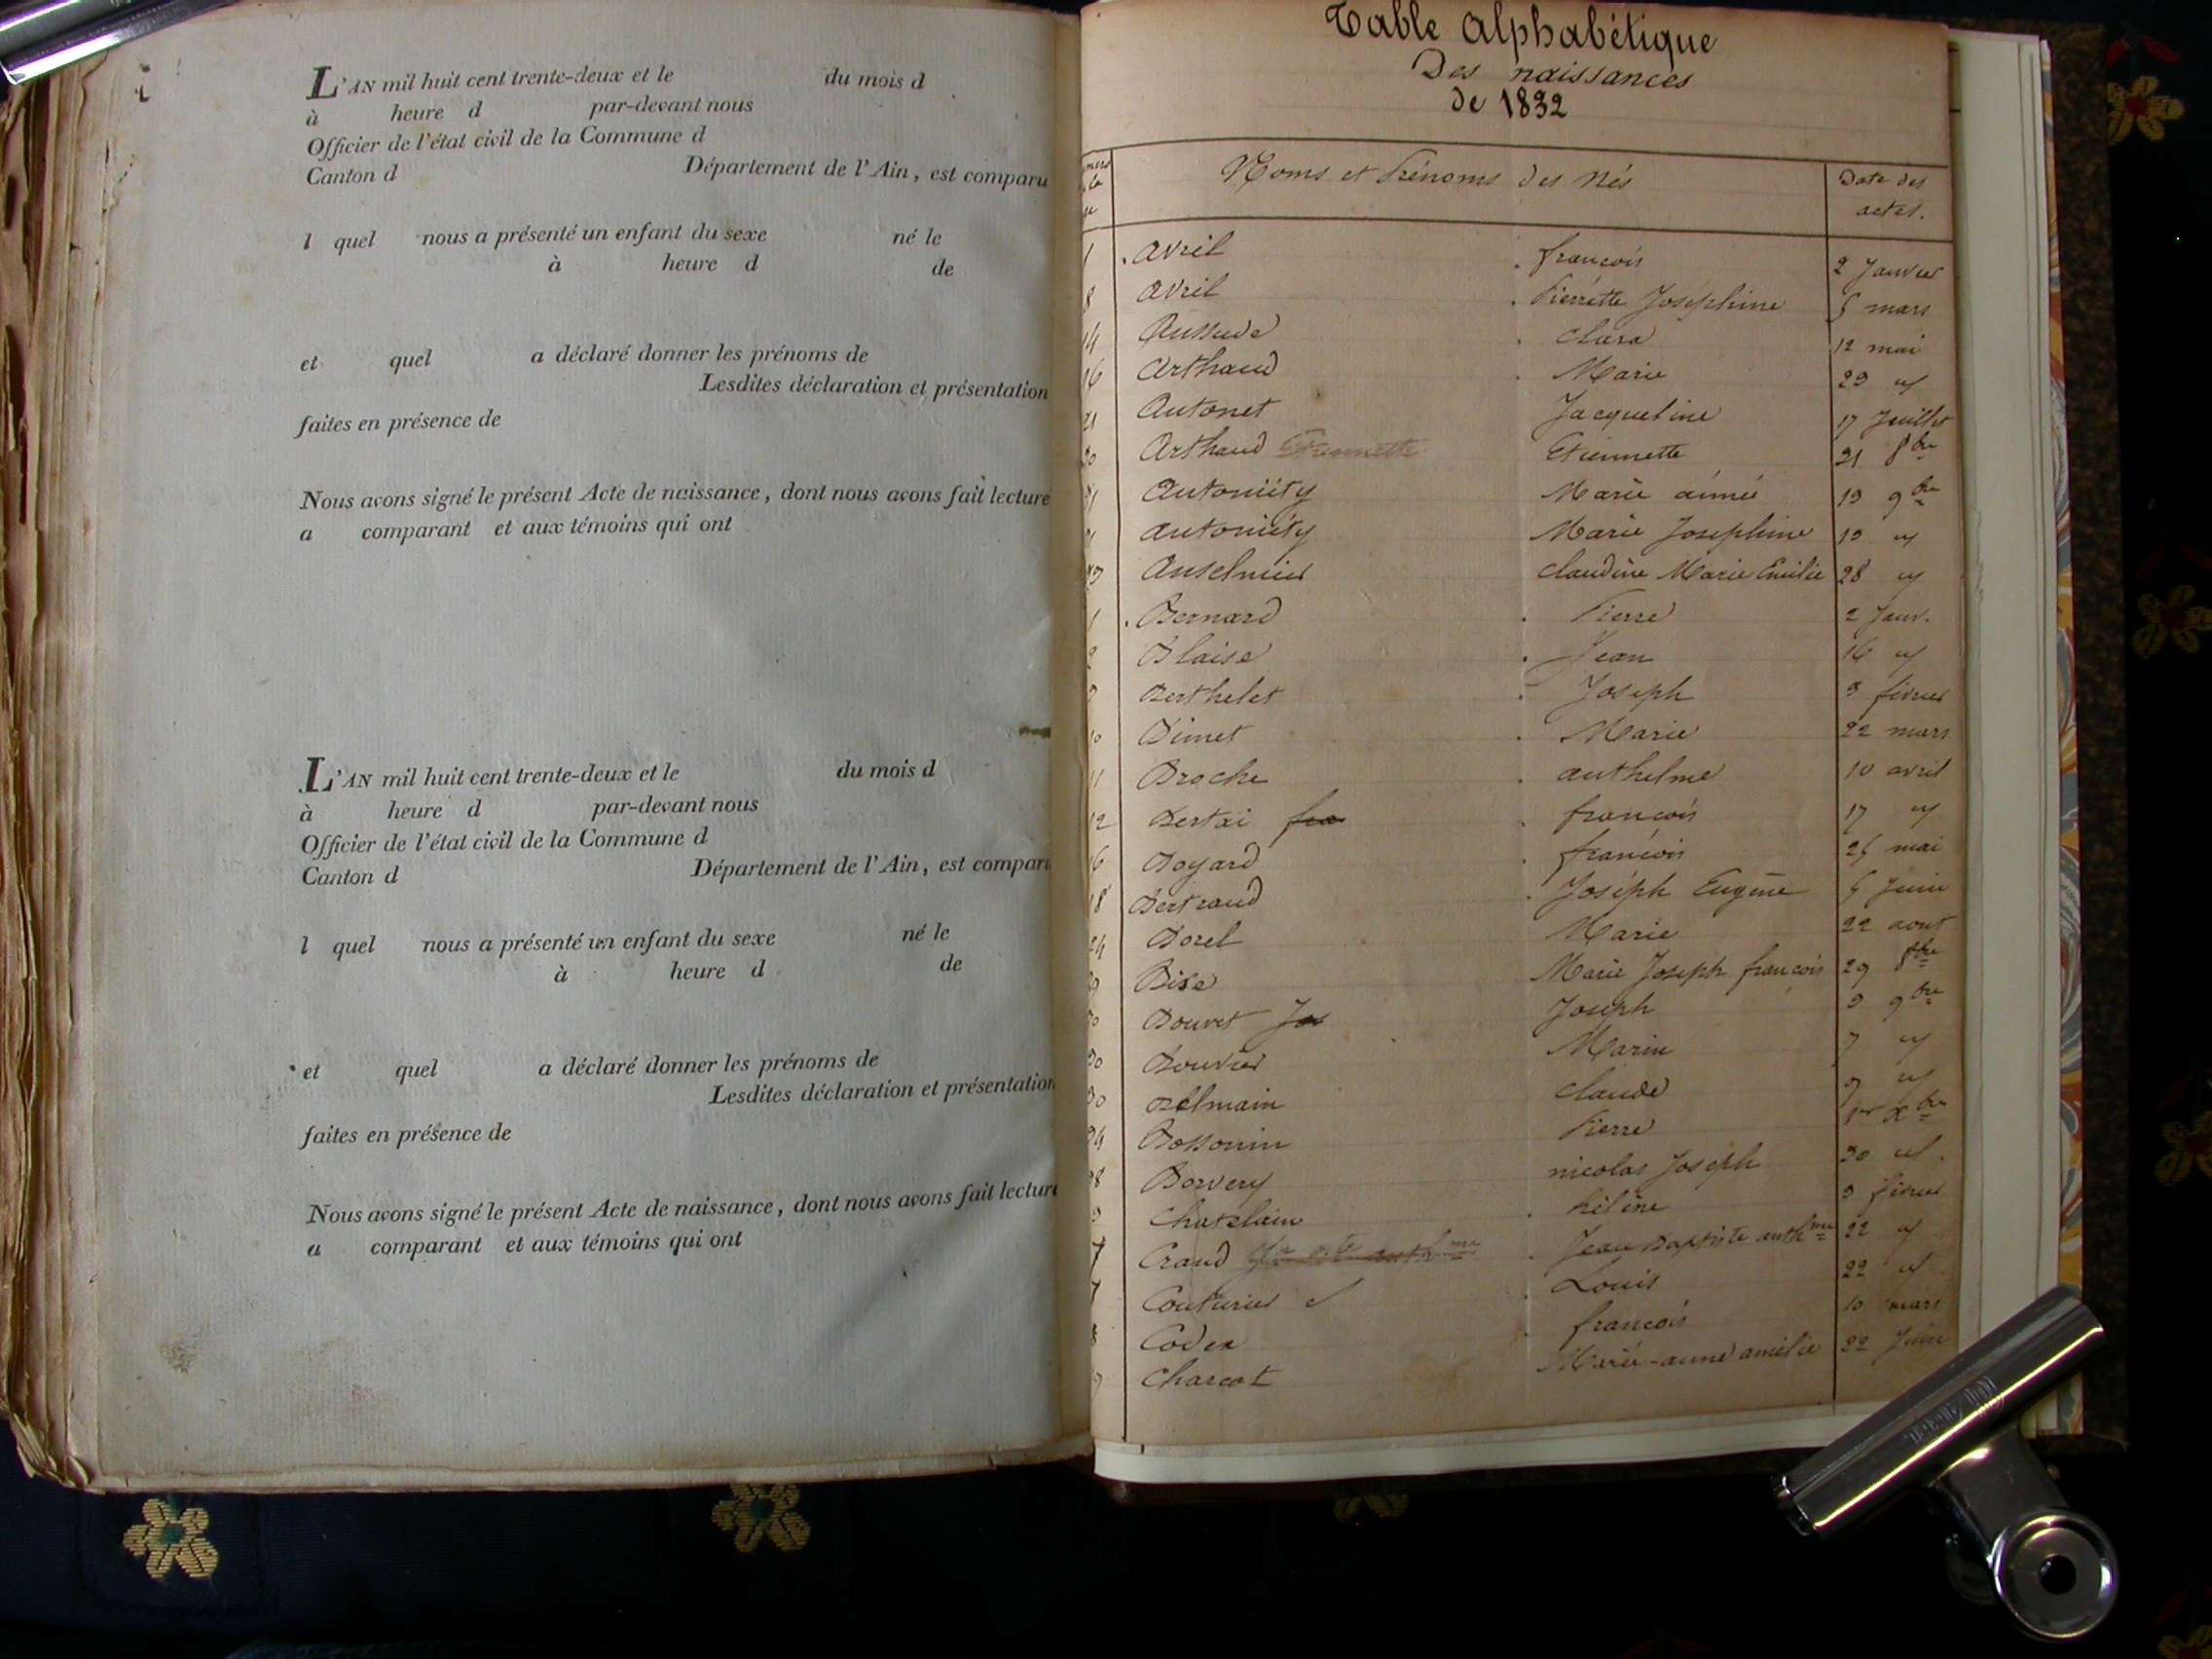 L'AN mil huit cent trente-deux et le du mois d
à heure d par-devant nous
Officier de l'état civil de la Commune d
Canton d Département de l'Ain, est comparu
l quel nous a présenté un enfant du sexe né le
à heure d de
et quel a déclaré donner les prénoms de
Lesdites déclaration et présentation
faites en présence de
Nous avons signé le présent Acte de naissance, dont nous avons fait lecture
a comparant et aux témoins qui ont
L'AN mil huit cent trente-deux et le du mois d
à heure d par-devant nous
Officier de l'état civil de la Commune d
Canton d Département de l'Ain, est comparu
l quel nous a présenté un enfant du sexe né le
à heure d de
et quel a déclaré donner les prénoms de
Lesdites déclaration et présentation
faites en présence de
Nous avons signé le présent Acte de naissance, dont nous avons fait lecture
a comparant et aux témoins qui ont
Table Alphabétique
Des naissances
de 1832
Noms et Prénoms des Nés Date des
actes.
1 Avril françois 2 Janvier
8 Avril Pierrette Joséphine 5 mars
14 clara 12 mai
16 Arthaud Marie 29
21 Autonet Jacqueline 17 Juillet
30 Arthaud Etiennette Etiennette 21 8bre
Antoniéty Marie aimée 19 9bre
Antoniéty Marie Josephine 19
Anselmier claudine Marie Emilie 28
1 Bernard Pierre 2 Janv.
2 Blaise Jean 16
Berthelet Joseph 3 février
10 Bimet Marie 22 mars
11 Broche anthelme 10 avril
12 Bertai fra françois 17
16 Boyard françois 25 mai
18 Bertrand Joséph Eugène 5 Juin
24 Borel Marie 22 aout
Bise Marie Joseph françois 29 8bre
30 Bouvet Jos Joseph 3 9bre
30 Bouvier Marin 7
30 Belmain claude 9
34 Bossonin Pierre 1er Xbre
38 Borvery nicolas Joseph 30
Chatelain hélène 3 février
7 Craud Jean Baptiste anthme 22
7 Couturier Louis 22
8 Codex françois 10 mars
Charcot Marie-anne amélie 22 Juin